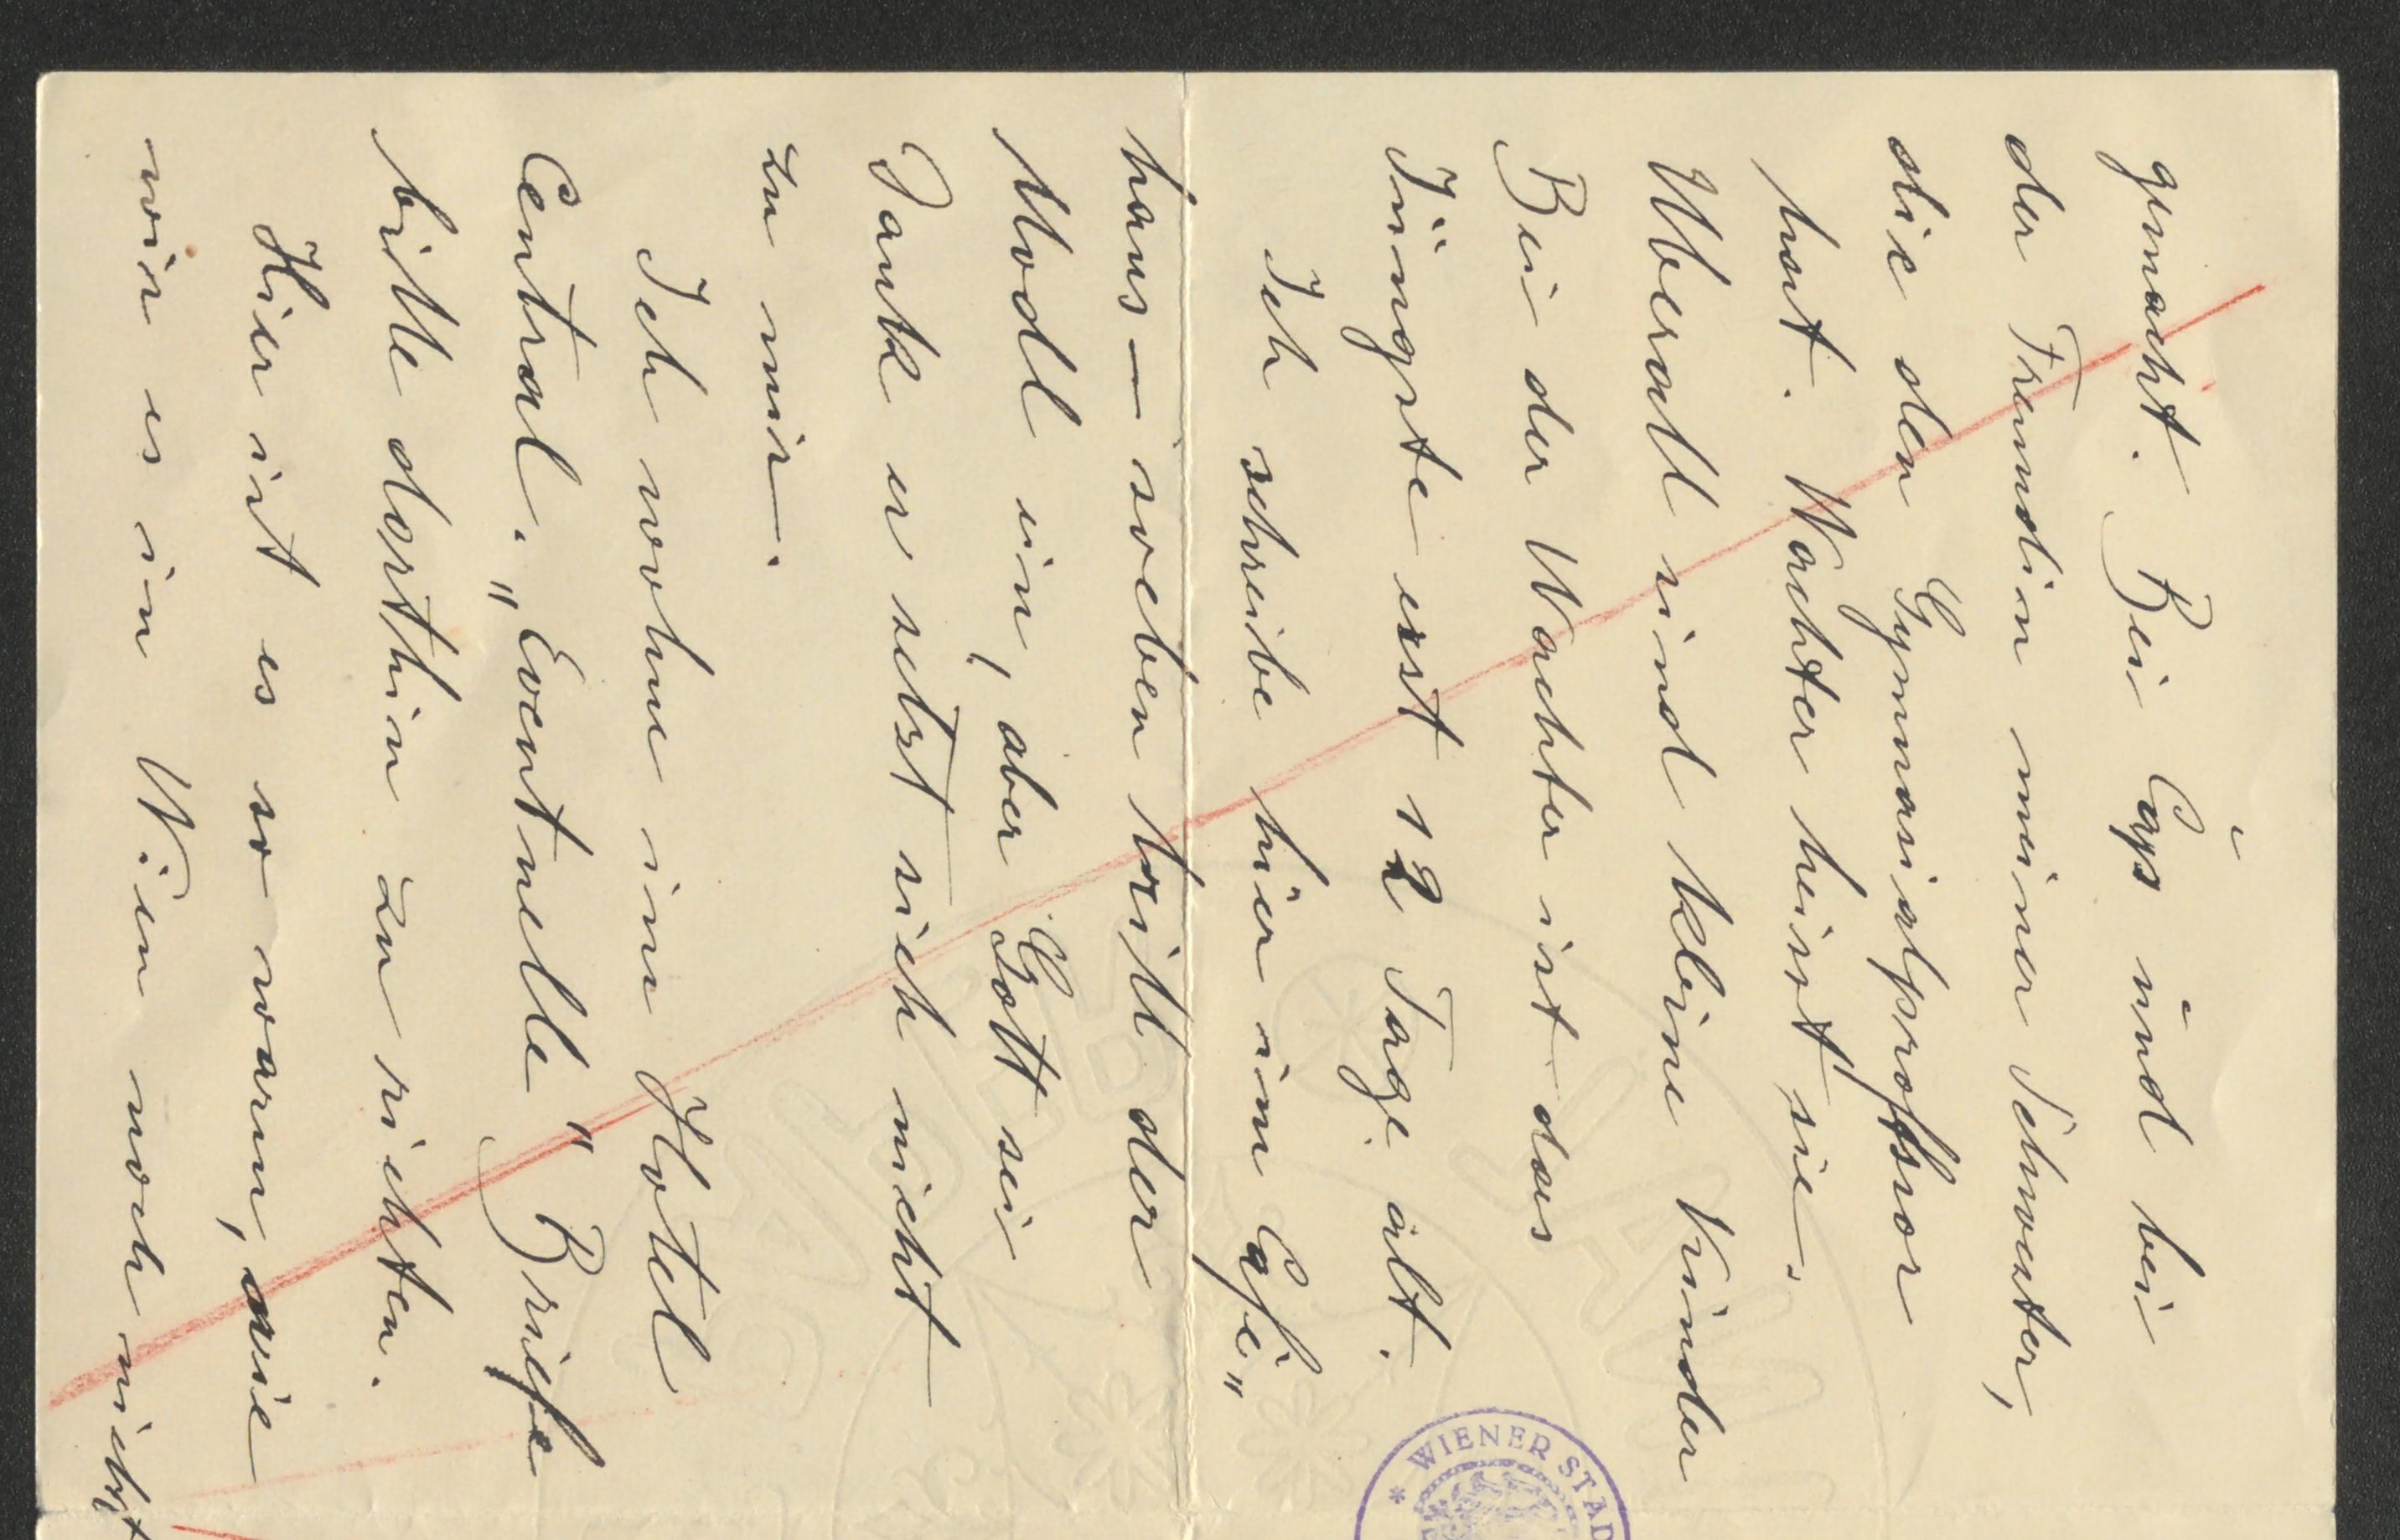 gemacht. Bei Cys und bei
der Freundin meiner Schwester,
die den Gymnasialprofessor
hat. Wachter heisst sie.
Überall sind kleine Kinder
Bei der Wachter ist das
Jüngste erst 12 Tage alt.
Ich schreibe hier im Cafè„
haus – soeben tritt der
Modl ein, aber Gott sei
Dank er setzt sich nicht
zu mir.
Ich wohne im Hotel
Central. „Eventuelle“ Briefe
bitte dorthin zu richten.
Hier ist es so warm, wie
wir es in Wien noch nicht
WIENER STAD